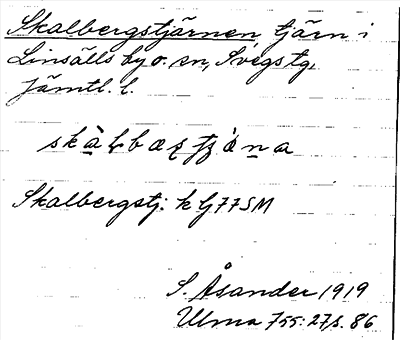 Skalbergstjärnen, tjärn i
Linsälls by o. sn, Svegs tg,
Jämtl. l.
Skalbergstj: k Gj 77 SM
S. Åsander 1919
Ulma 755: 27/s. 86